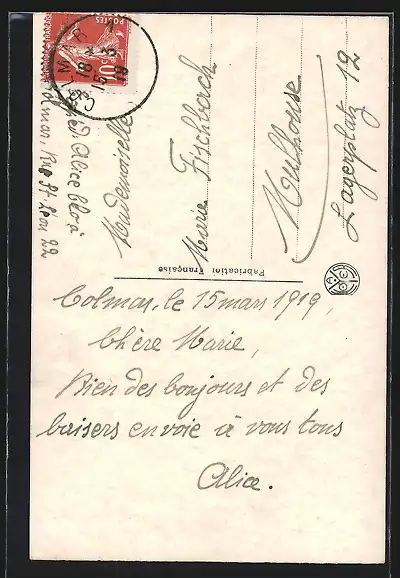 Colmar, le 15 mars 1919,
Chère Marie,
Bien des bonjours et des
baisers envoie à vous tous
Alice.
Mademoiselle
Marie Fischbach
Mulhouse
Lagerplatz 12
Fabrication Française
Alice
Colmar, Rue St. Léon 22
POSTES
10
COLMAR
18 *
15-3
19